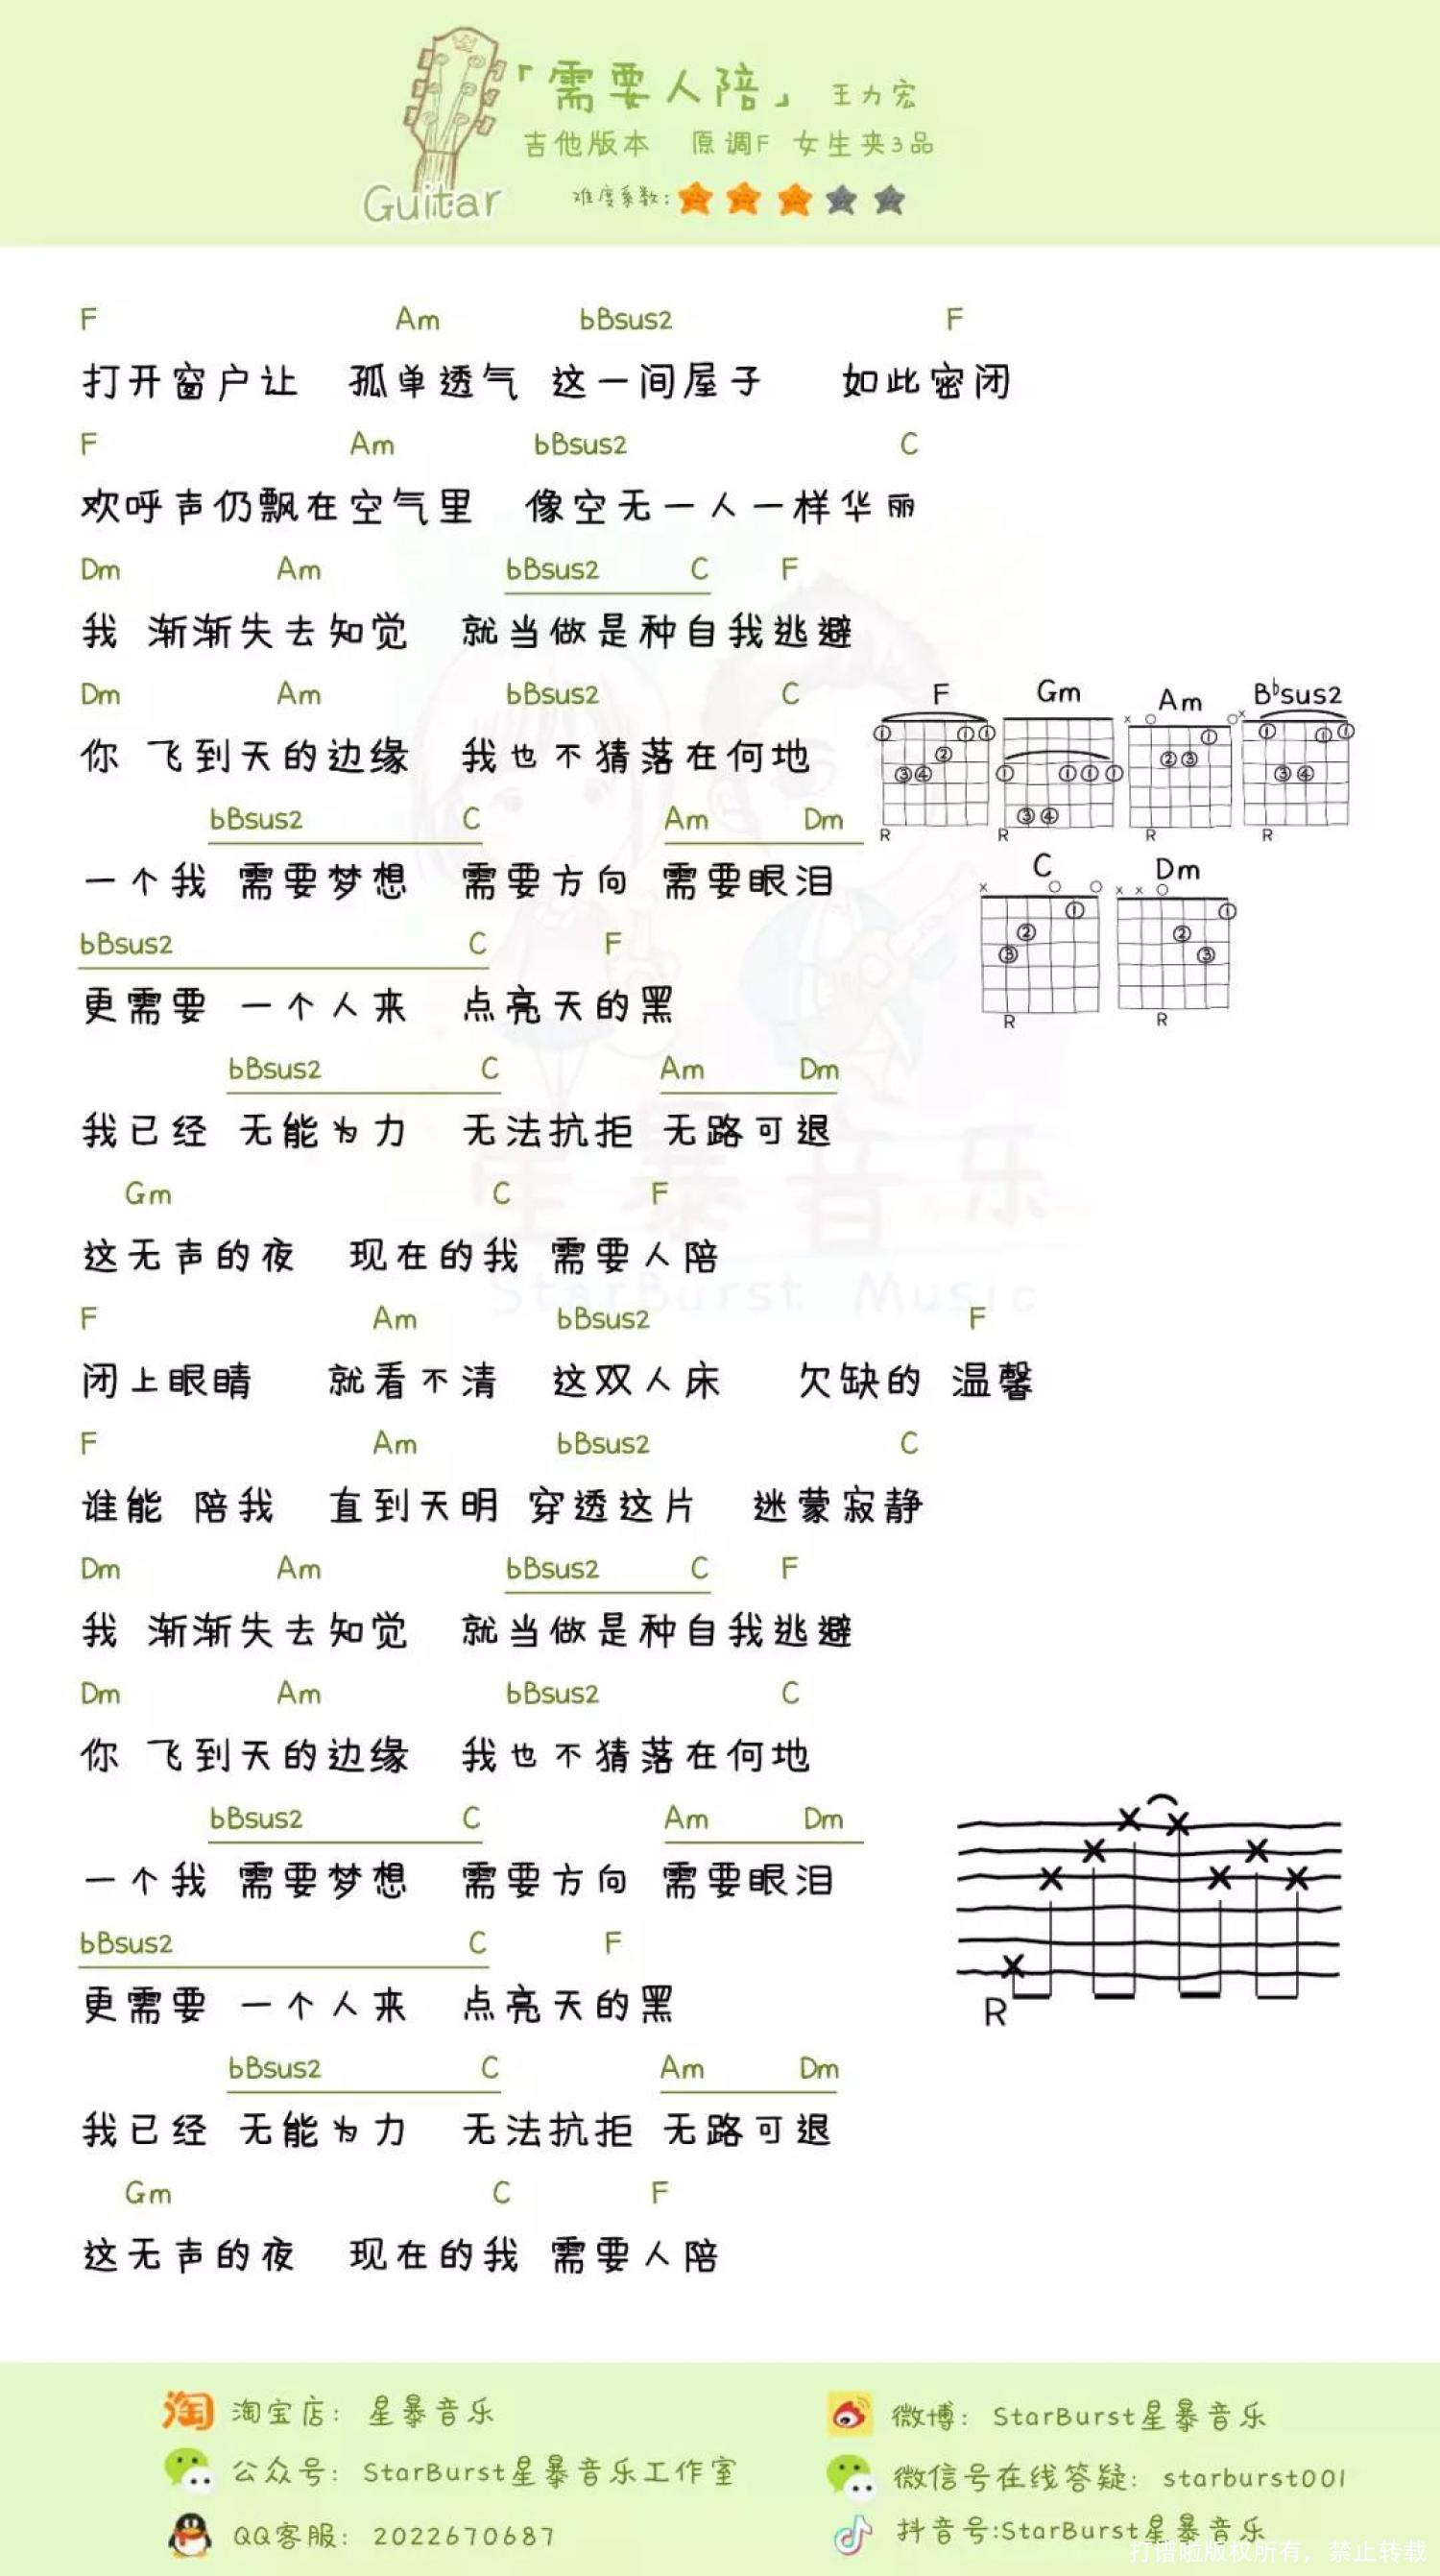 「需要人陪」 王力宏
吉他版本 原调F 女生夹3品
Guitar 难度系数:
F Am bBsus2 F
打开窗户让 孤单透气 这一间屋子 如此密闭
F Am bBsus2 C
欢呼声仍飘在空气里 像空无一人一样华丽
Dm Am bBsus2 C F
我 渐渐失去知觉 就当做是种自我逃避
Dm Am bBsus2 C
你 飞到天的边缘 我也不猜落在何地
F Gm Am B♭sus2
R R R R
bBsus2 C Am Dm
一个我 需要梦想 需要方向 需要眼泪
C Dm
R R
bBsus2 C F
更需要 一个人来 点亮天的黑
bBsus2 C Am Dm
我已经 无能为力 无法抗拒 无路可退
星暴音乐
Gm C F
这无声的夜 现在的我 需要人陪
StarBurst Music
F Am bBsus2 F
闭上眼睛 就看不清 这双人床 欠缺的 温馨
F Am bBsus2 C
谁能 陪我 直到天明 穿透这片 迷蒙寂静
Dm Am bBsus2 C F
我 渐渐失去知觉 就当做是种自我逃避
Dm Am bBsus2 C
你 飞到天的边缘 我也不猜落在何地
bBsus2 C Am Dm
一个我 需要梦想 需要方向 需要眼泪
bBsus2 C F
更需要 一个人来 点亮天的黑
R
bBsus2 C Am Dm
我已经 无能为力 无法抗拒 无路可退
Gm C F
这无声的夜 现在的我 需要人陪
淘 淘宝店: 星暴音乐
微博: StarBurst星暴音乐
公众号: StarBurst星暴音乐工作室
微信号在线答疑: starburst001
QQ客服: 2022670687
抖音号:StarBurst星暴音乐
打谱啦版权所有，禁止转载